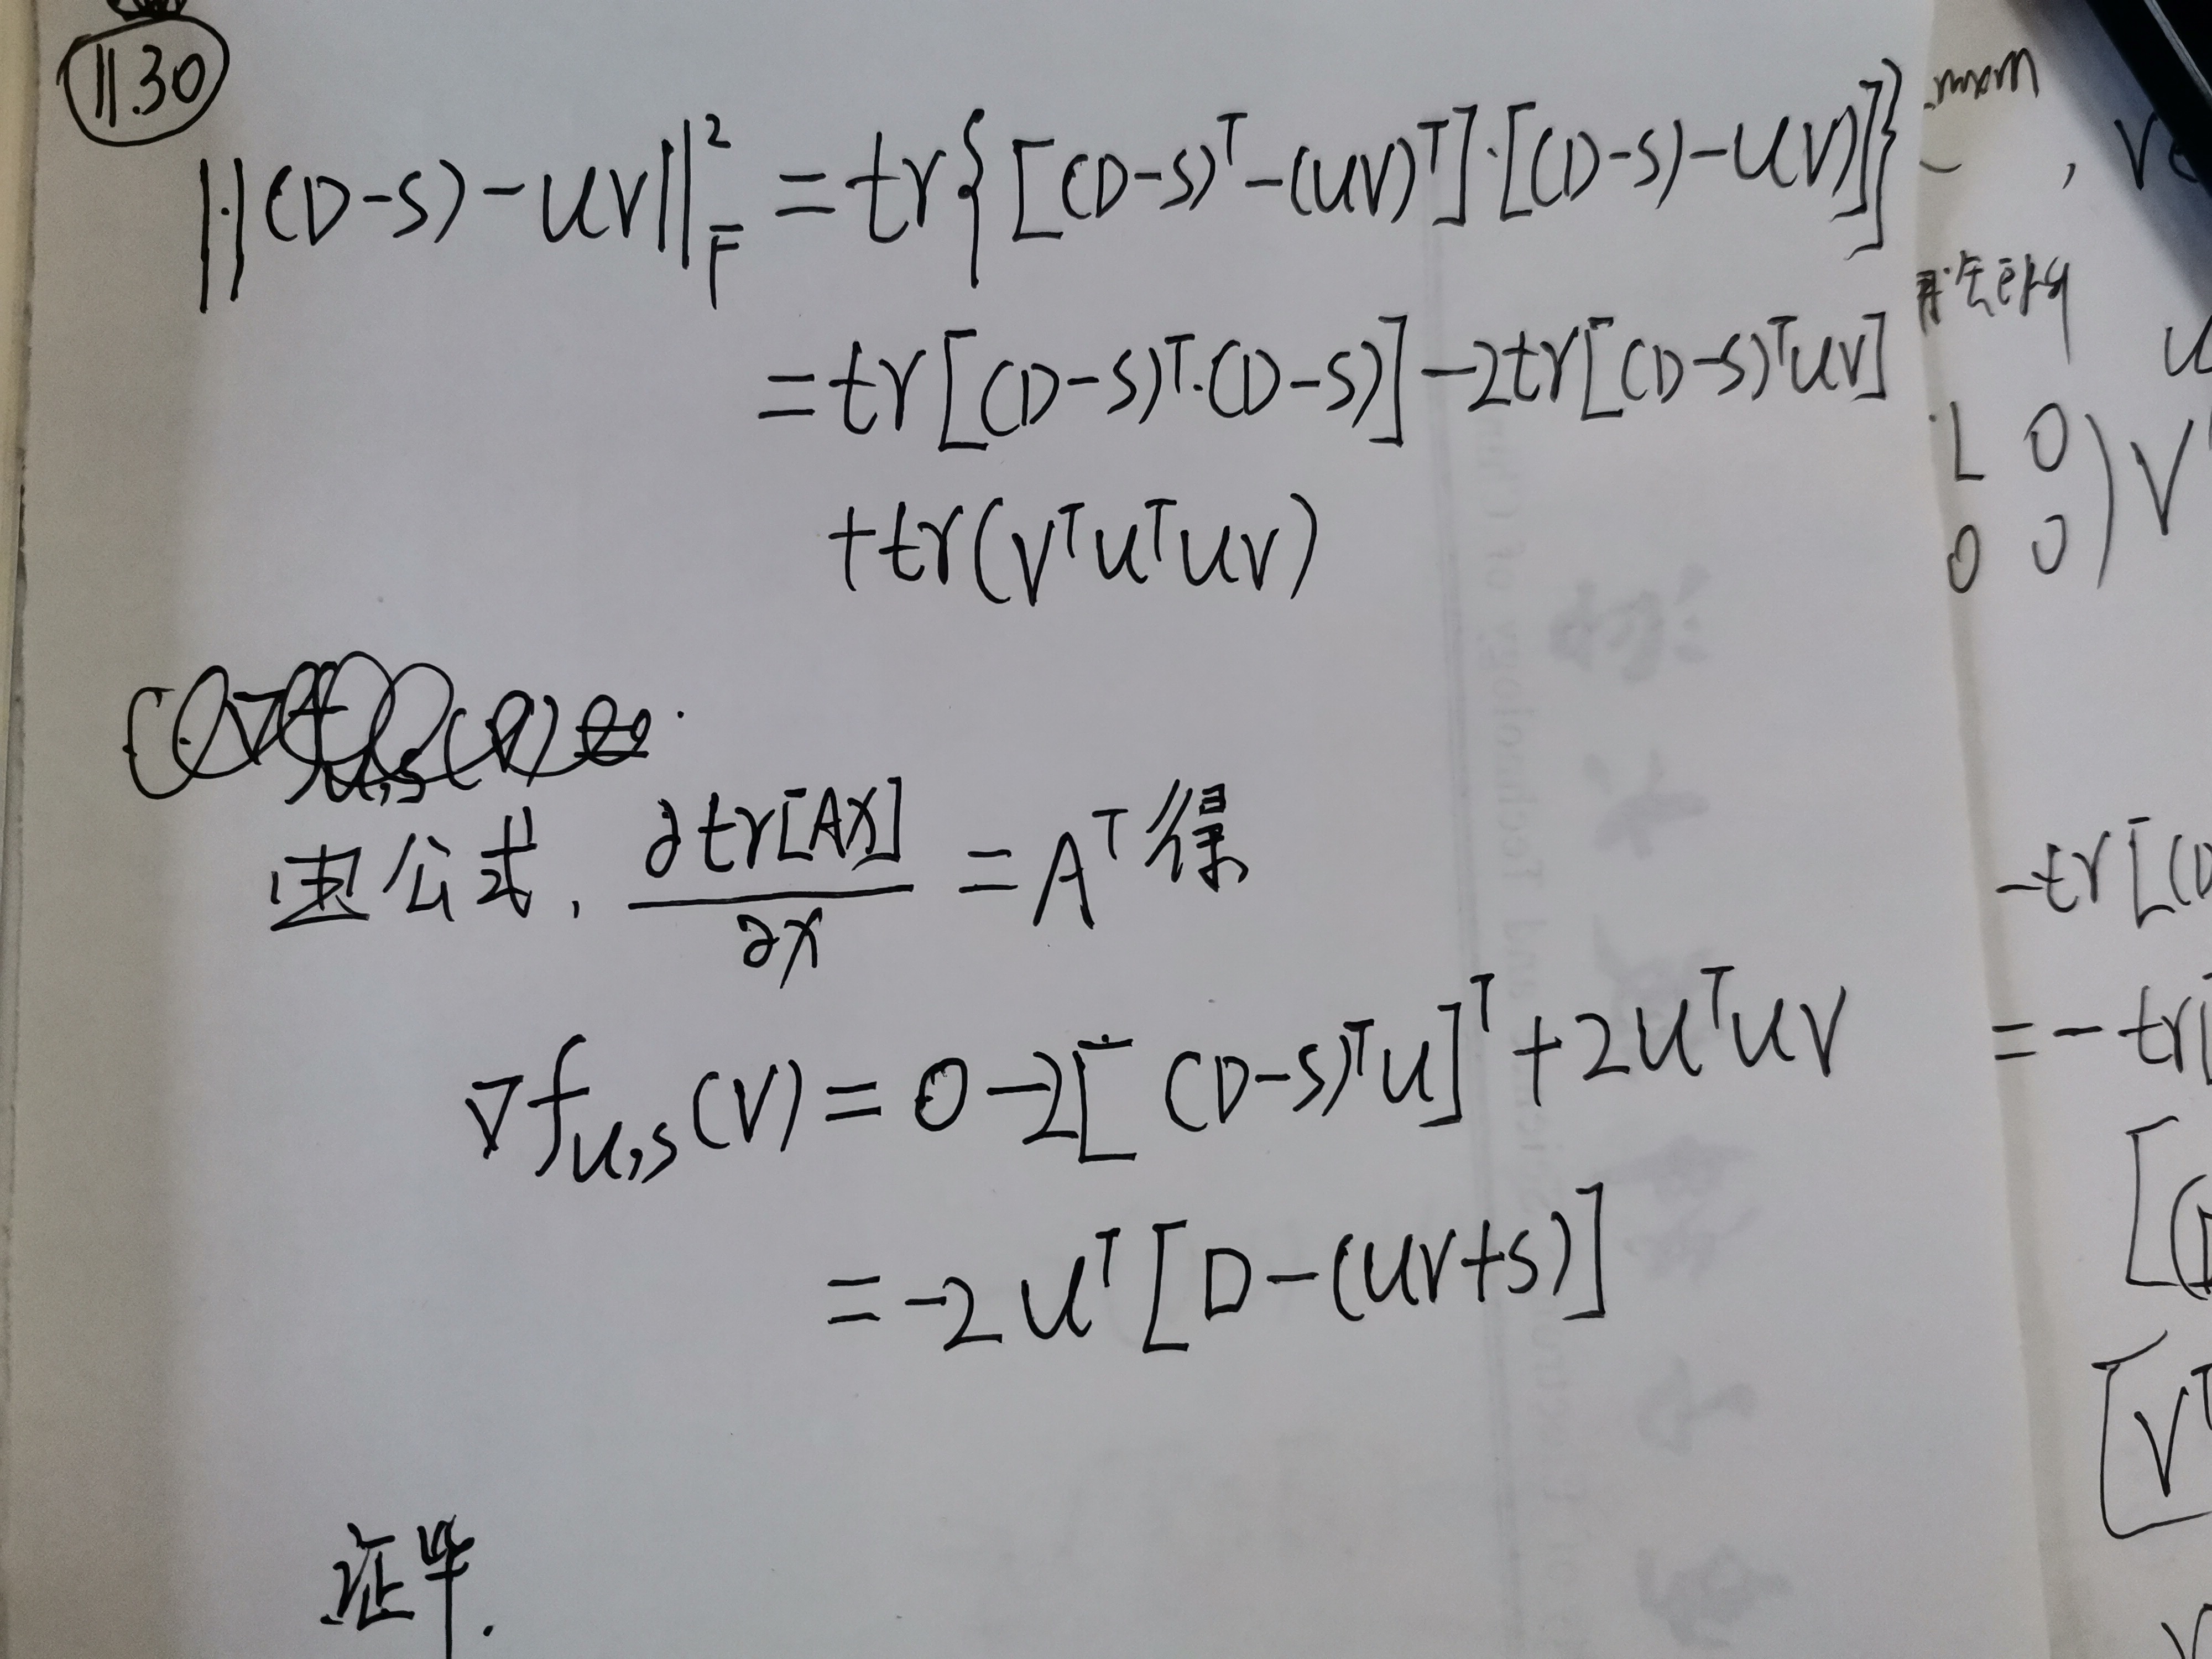 11.30
||(D-S)-UV||²_F = tr{[(D-S)ᵀ-(UV)ᵀ]·[(D-S)-UV]}
= tr[(D-S)ᵀ·(D-S)] -2tr[(D-S)ᵀUV]
+tr(VᵀUᵀUV)
由公式, ∂tr[AX]/∂X = Aᵀ 得
∇f_{U,S}(V) = 0-2[(D-S)ᵀU]ᵀ+2UᵀUV
= -2Uᵀ[D-(UV+S)]
证毕.
mxm
, V
U
L 0
0 0
) Vᵀ
-tr[(D
= - tr[
[(D
[Vᵀ